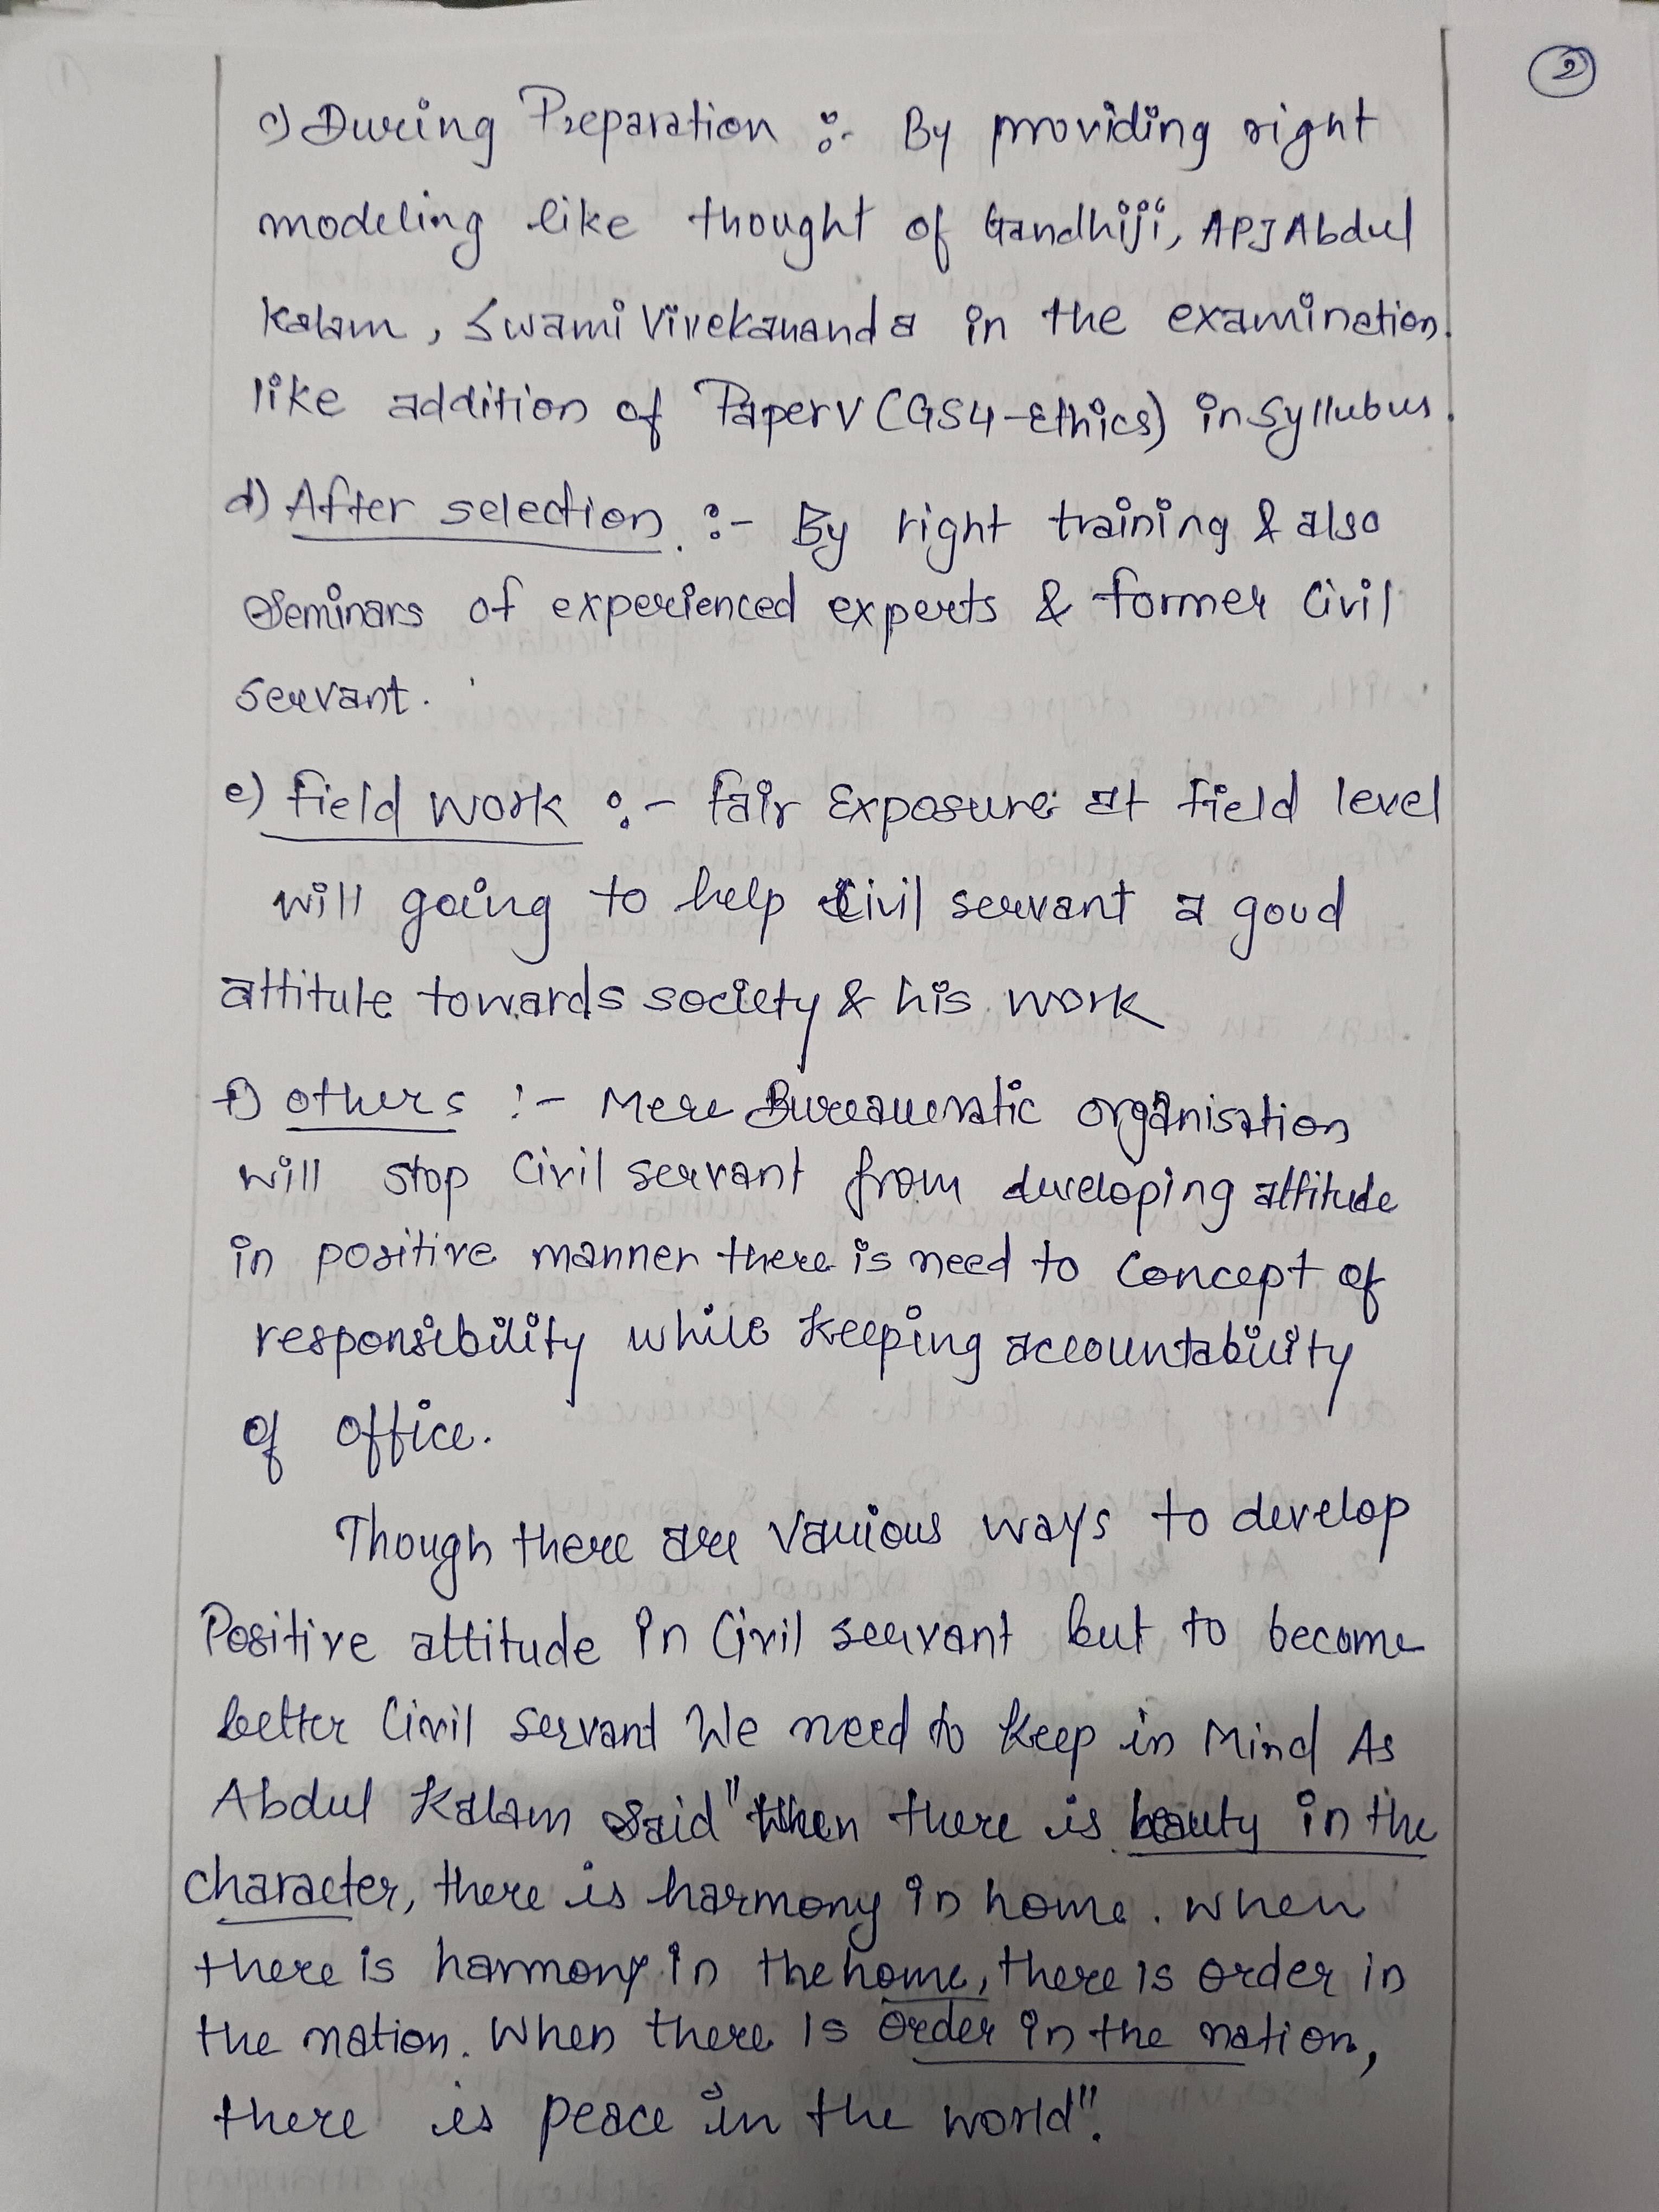 2
c) During Preparation :- By providing right
modeling like thought of Gandhiji, APJ Abdul
Kalam, Swami Vivekananda in the examination.
like addition of Paper V (GS4-Ethics) in Syllubus.
d) After selection. :- By right training & also
Seminars of experienced experts & former Civil
Servant.
e) field work :- fair Exposure at field level
will going to help Civil servant a good
attitute towards society & his work
f) others :- Mere Bureaucratic organisation
will stop Civil servant from developing attitude
in positive manner there is need to Concept of
responsibility while keeping accountability
of office.
Though there are various ways to develop
Positive attitude in Civil servant but to become
better Civil Servant We need to keep in Mind As
Abdul Kalam Said "When there is beauty in the
character, there is harmony in home. when
there is harmony in the home, there is order in
the nation. When there is order in the nation,
there is peace in the world".